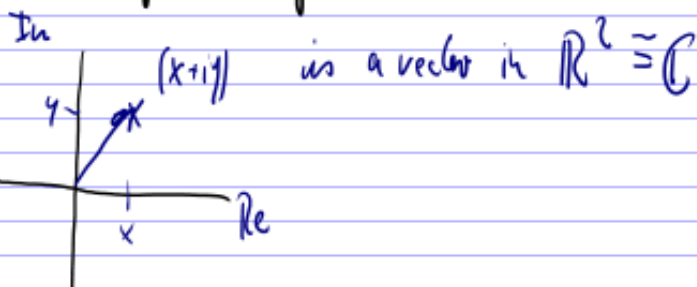 Im
(x+iy) is a vector in ℝ² ≅ ℂ
y
Re
x